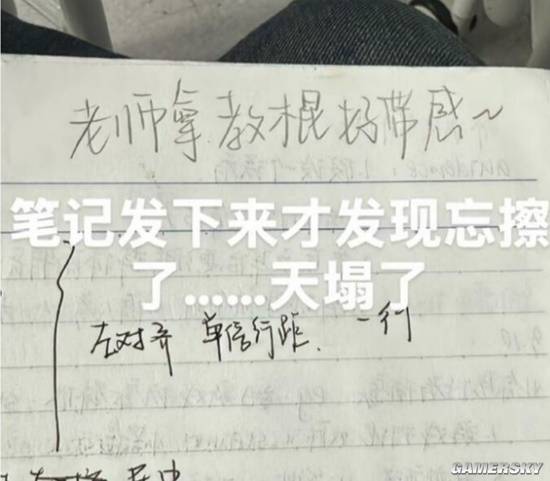 老师拿教棍好带感~
笔记发下来才发现忘擦
了......天塌了
左对齐 单倍行距、一行
GAMERSKY